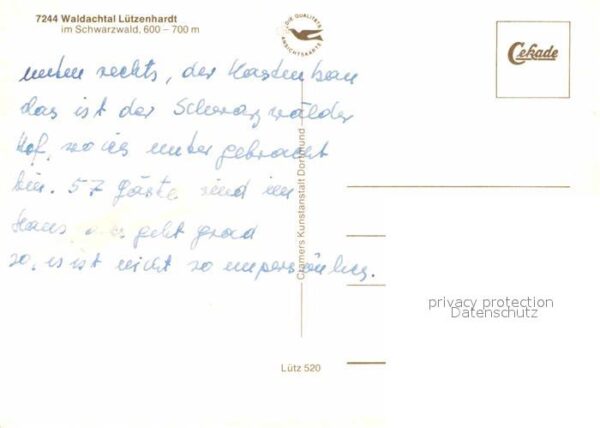 7244 Waldachtal Lützenhardt
im Schwarzwald, 600 – 700 m
DIE QUALITÄTS
ANSICHTSKARTE
Cekade
unten rechts, der Kastenbau
das ist der Schwarzwälder
Hof, wo ich untergebracht
bin. 57 Gäste sind im
Haus, geht grad
so, es ist nicht so unpersönlich.
Cramers Kunstanstalt Dortmund
Lütz 520
privacy protection
Datenschutz